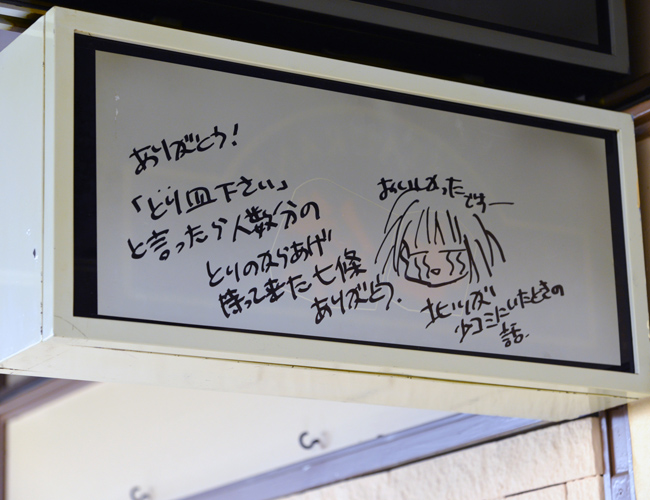 ありがとう!
「とり皿下さい」
と言ったら人数分の
とりのからあげ
持って来た七條
ありがとう.
おいしかった
ですー
北川が
少コミにいたときの
話.